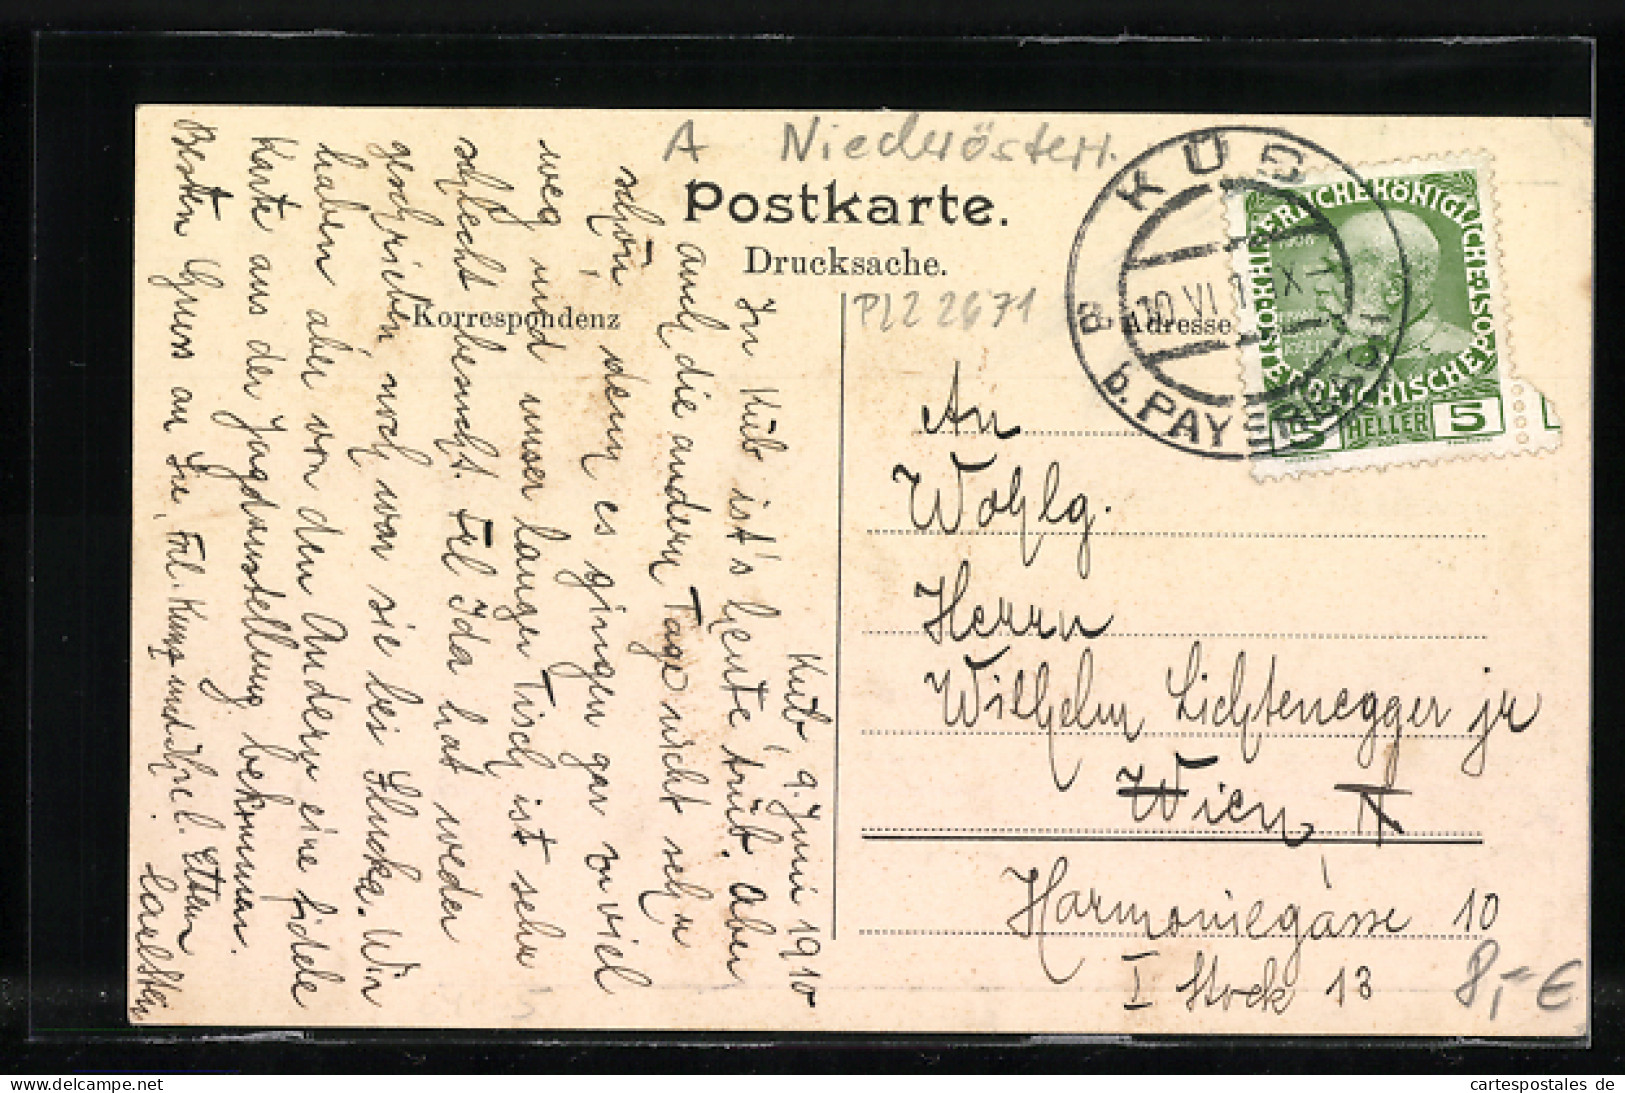 A Niederösterr.
Postkarte.
Drucksache.
PLZ 2671
Korrespondenz
Adresse
KÜB
10 VI 1 X
b. PAYERBACH
KAISERLICHE KÖNIGLICHE
ÖSTERREICHISCHE POST
1908
5 HELLER 5
An
Wohlg.
Herrn
Wilhelm Lichtenegger jr
Wien,
Harmoniegasse 10
I Stock 13
8,- €
Küb, 9. Juni 1910
In Küb ist's heute trüb. Aber
auch die andern Tage nicht sehr
schön, denn es gingen gar zu viel
weg und unser langer Tisch ist sehr
schlecht besucht. Frl Ida hat weder
geschrieben, noch war sie bei Hluska. Wir
haben aber von den Andern eine fidele
Karte aus der Jagdausstellung bekommen.
Besten Gruss an Sie, Frl. und Ihre l. Eltern
delcampe.net
cartespostales de